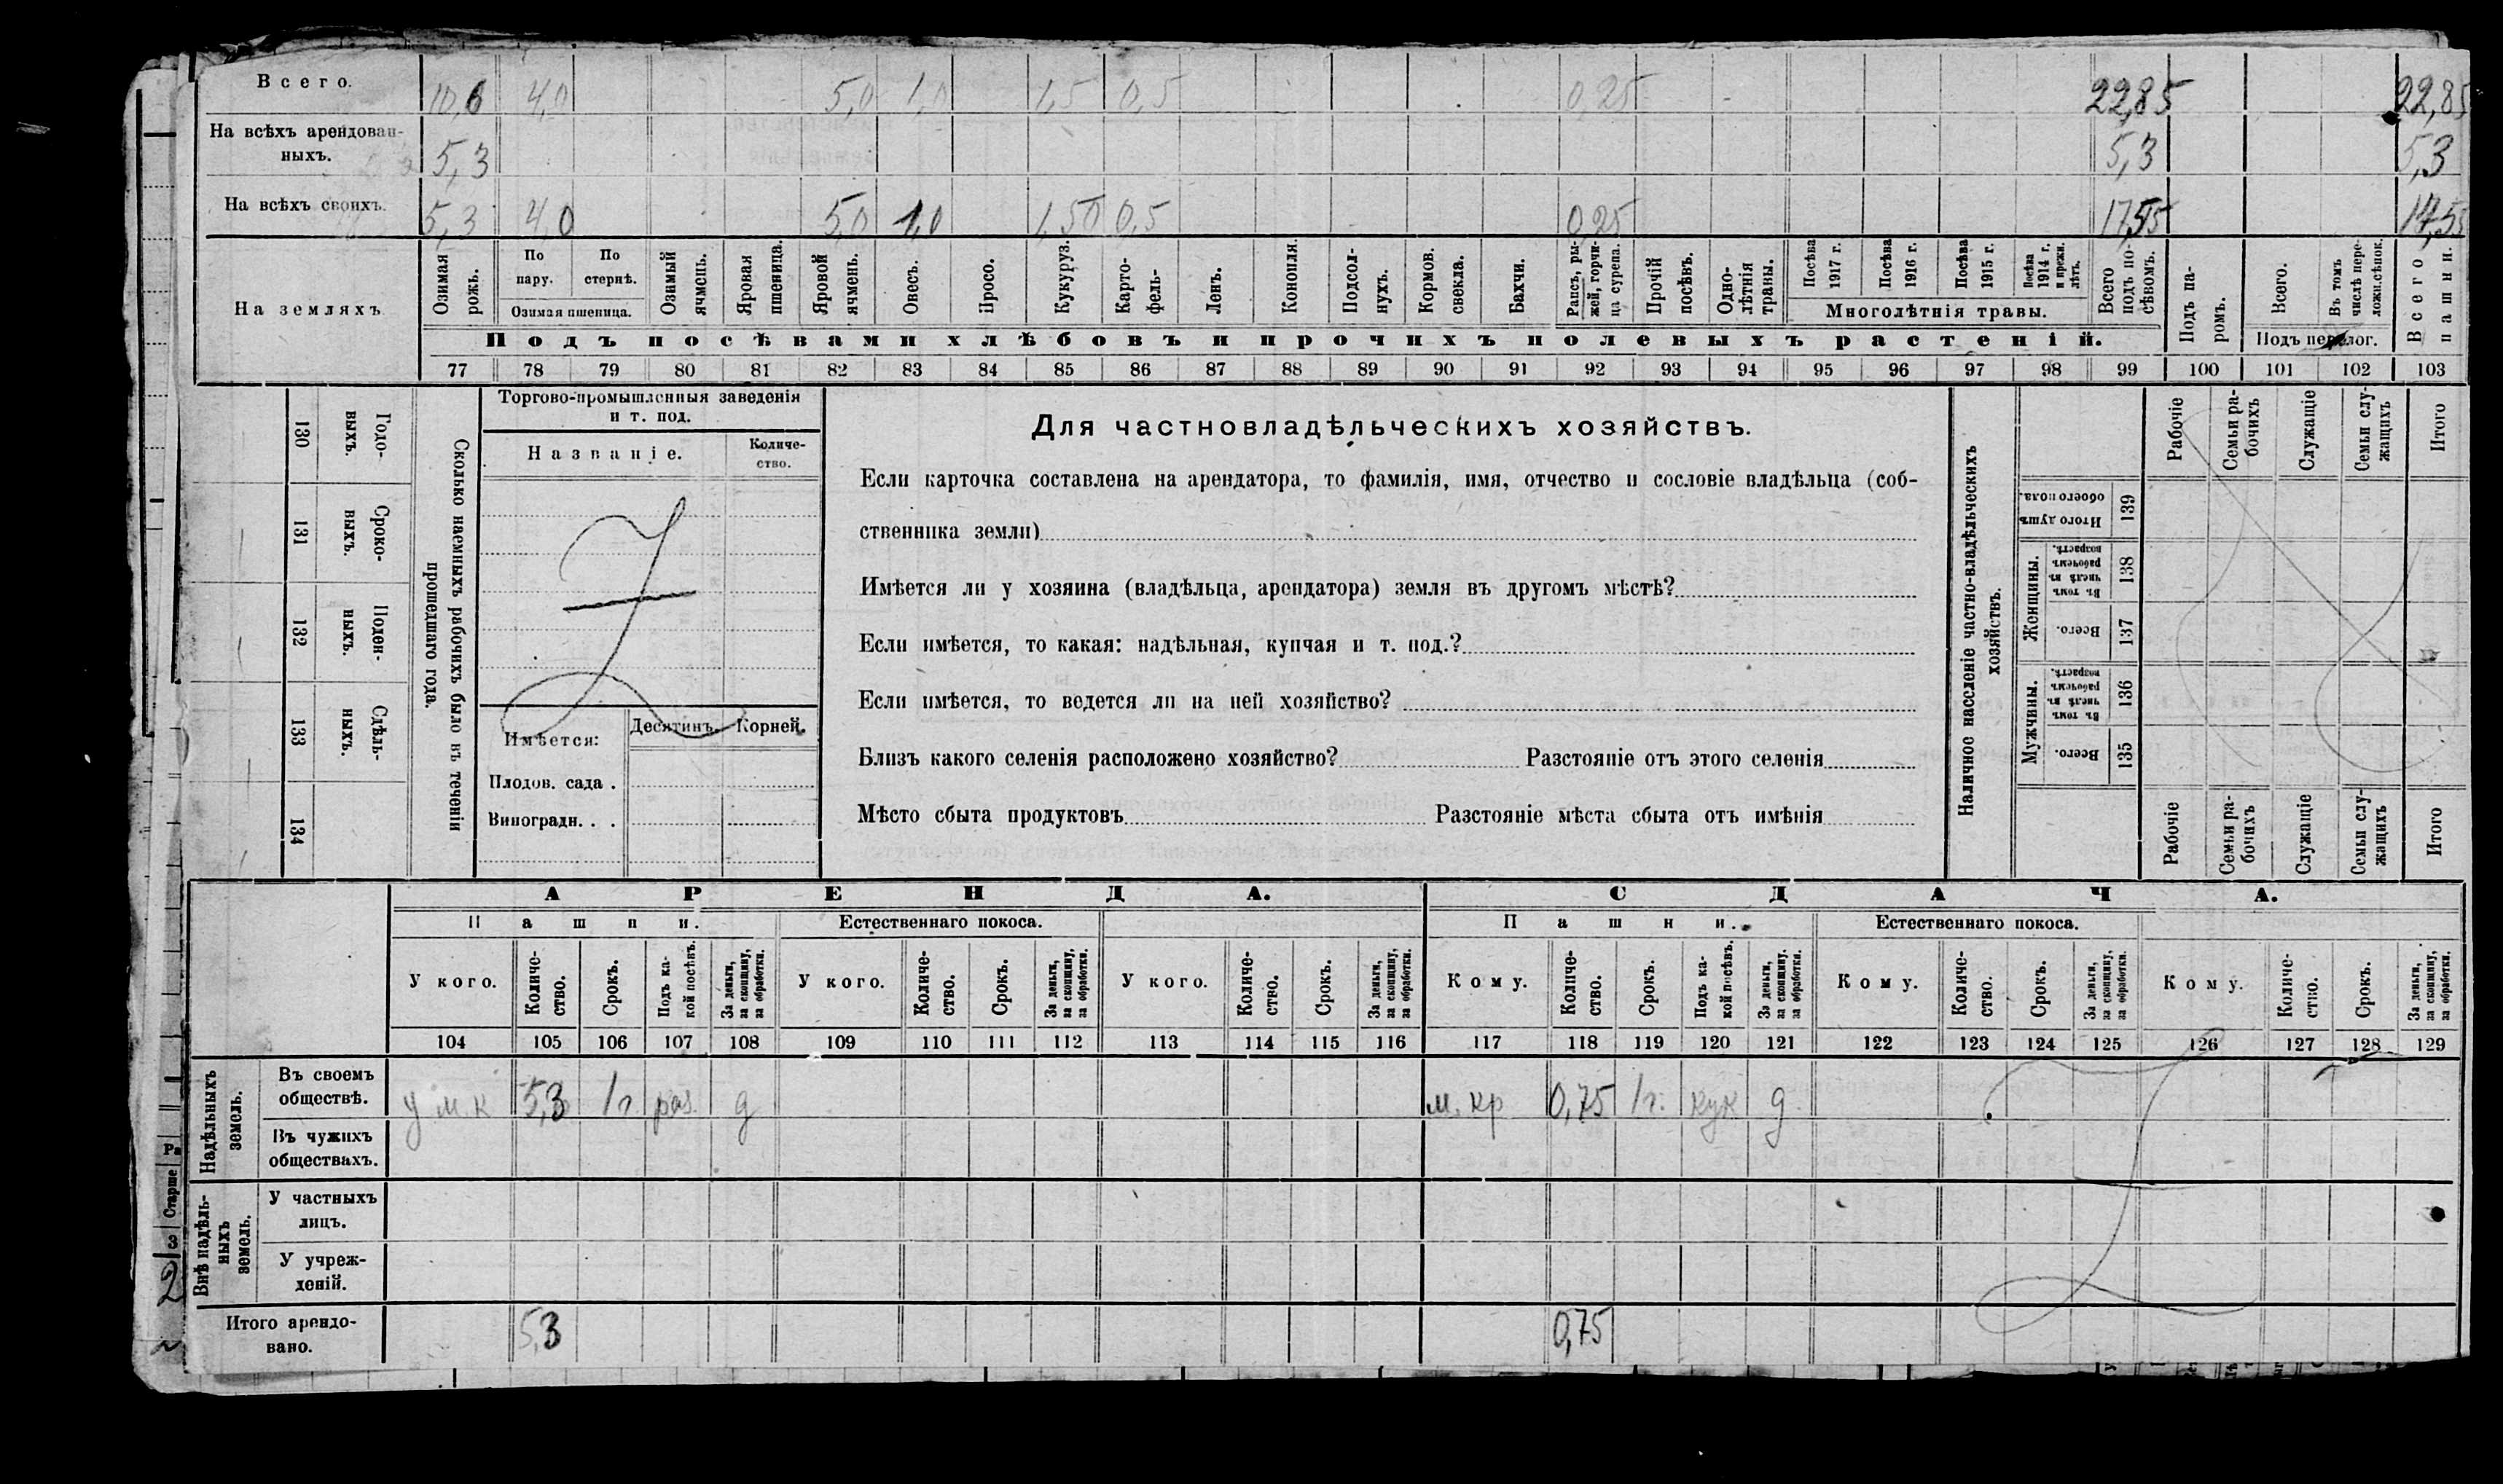 Всего. 10,6 4,0 5,0 1,0 1,5 0,5 0,25 22,85 22,85
На всѣхъ арендован-
ныхъ. 5,3 5,3 5,3
На всѣхъ своихъ. 5,3 4,0 5,0 1,0 1,50 0,5 0,25 17,55 17,55
На земляхъ
Озимая рожь.
По пару.
По стернѣ.
Озимая пшеница.
Озимый ячмень.
Яровая пшеница.
Яровой ячмень.
Овесъ.
Просо.
Кукуруз.
Карто-
фель-
Ленъ.
Конопля.
Подсол-
нухъ.
Кормов.
свекла.
Бахчи.
Рапсъ, ры-
жей, горчи-
ца сурепа.
Прочій
посѣвъ.
Одно-
лѣтнія
травы.
Посѣва
1917 г.
Посѣва
1916 г.
Посѣва
1915 г.
Посѣва
1914 г.
и прежн.
лѣтъ.
Многолѣтнія травы.
Всего
подъ по-
сѣвомъ.
Подъ па-
ромъ.
Всего.
Въ томъ
числѣ пере-
ложн.сѣнок.
Подъ перелог.
Всего
пашни.
Подъ посѣвами хлѣбовъ и прочихъ полевыхъ растеній.
77 78 79 80 81 82 83 84 85 86 87 88 89 90 91 92 93 94 95 96 97 98 99 100 101 102 103
130 Годо-
выхъ.
131 Сроко-
выхъ.
132 Поден-
ныхъ.
133 Сдѣль-
ныхъ.
134
Сколько наемныхъ рабочихъ было въ теченіи
прошедшаго года.
Торгово-промышленныя заведенія
и т. под.
Названіе.
Количе-
ство.
Имѣется:
Десятинъ. Корней.
Плодов. сада .
Виноградн. . .
Для частновладѣльческихъ хозяйствъ.
Если карточка составлена на арендатора, то фамилія, имя, отчество и сословіе владѣльца (соб-
ственника земли)
Имѣется ли у хозяина (владѣльца, арендатора) земля въ другомъ мѣстѣ?
Если имѣется, то какая: надѣльная, купчая и т. под.?
Если имѣется, то ведется ли на ней хозяйство?
Близъ какого селенія расположено хозяйство? Разстояніе отъ этого селенія
Мѣсто сбыта продуктовъ Разстояніе мѣста сбыта отъ имѣнія
Наличное населеніе частно-владѣльческихъ
хозяйствъ.
Рабочіе
Семьи ра-
бочихъ
Служащіе
Семьи слу-
жащихъ
Итого
Итого душъ
обоего пола.
139
Женщины.
Въ томъ
числѣ въ
рабочемъ
возрастѣ.
138
Всего.
137
Мужчины.
Въ томъ
числѣ въ
рабочемъ
возрастѣ.
136
Всего.
135
Рабочіе
Семьи ра-
бочихъ
Служащіе
Семьи слу-
жащихъ
Итого
АРЕНДА. СДАЧА.
Пашни. Естественнаго покоса. Пашни. Естественнаго покоса.
У кого.
Количе-
ство.
Срокъ.
Подъ ка-
кой посѣвъ.
За деньги,
за скопщину,
за обработки.
У кого.
Количе-
ство.
Срокъ.
За деньги,
за скопщину,
за обработки.
У кого.
Количе-
ство.
Срокъ.
За деньги,
за скопщину,
за обработки.
Кому.
Количе-
ство.
Срокъ.
Подъ ка-
кой посѣвъ.
За деньги,
за скопщину.
за обработки.
Кому.
Количе-
ство.
Срокъ.
За деньги,
за скопщину,
за обработки.
Кому.
Количе-
ство.
Срокъ.
За деньги,
за скопщину,
за обработки.
104 105 106 107 108 109 110 111 112 113 114 115 116 117 118 119 120 121 122 123 124 125 126 127 128 129
Надѣльныхъ
земель.
Въ своемъ
обществѣ. у м. к 5,3 1г раз. д м. кр 0,75 1г. кук д.
Въ чужихъ
обществахъ.
Внѣ надѣль-
ныхъ
земель.
У частныхъ
лицъ.
У учреж-
деній.
Итого арендо-
вано. 5,3 0,75
Старше
3
2